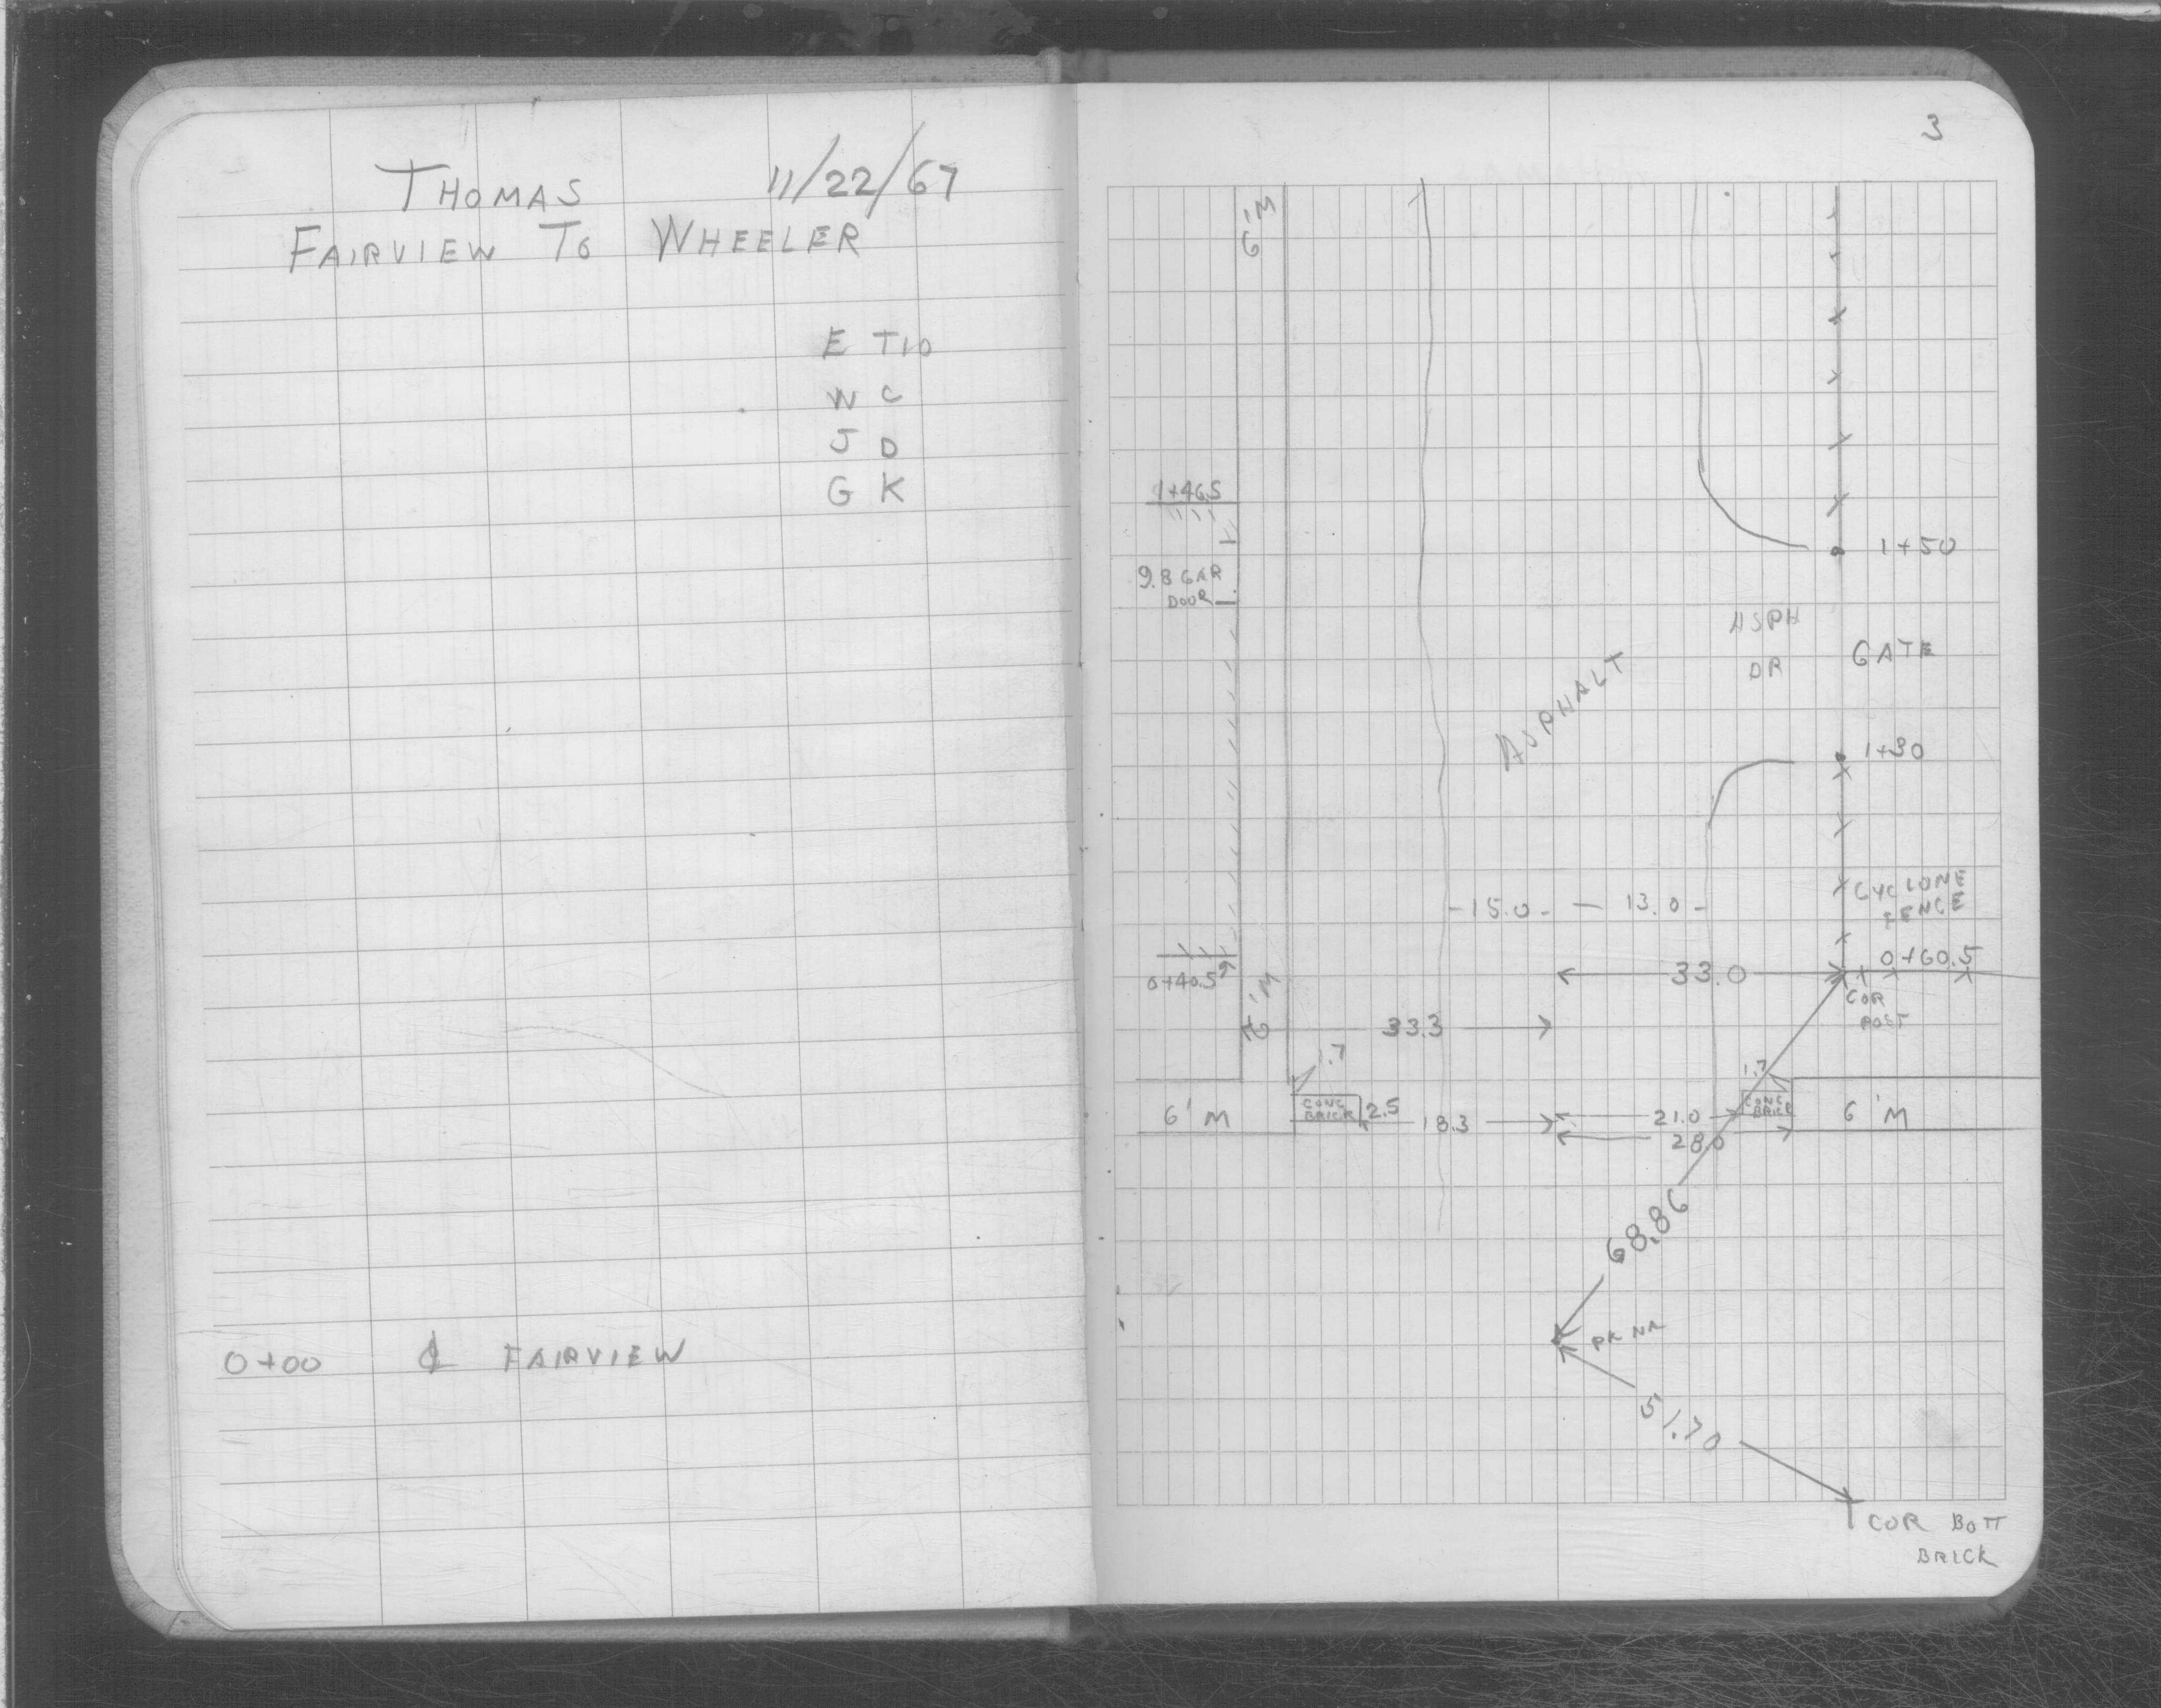 THOMAS 11/22/67
FAIRVIEW TO WHEELER
E TIO
W C
J D
G K
0+00 ℄ FAIRVIEW
3
6'M
1+46.5
1+50
9.8 GAR
DOOR
ASPH
DR
GATE
ASPHALT
1+30
CYCLONE
FENCE
15.0 13.0
0+60.5
33.0
0+40.5
6'M
COR
POST
33.3
1.7
1.7
6'M
CONC
BRICK
2.5
18.3
21.0
CONC
BRICK
6'M
28.0
68.86
PK NA
51.70
COR BOTT
BRICK